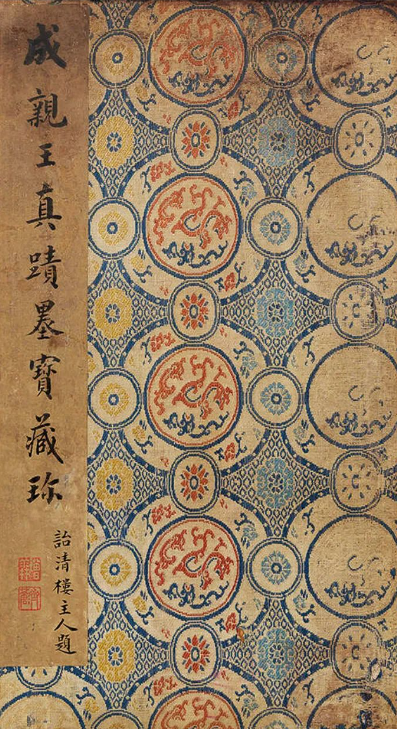 成親王真蹟墨寶藏珎
詒清樓主人題